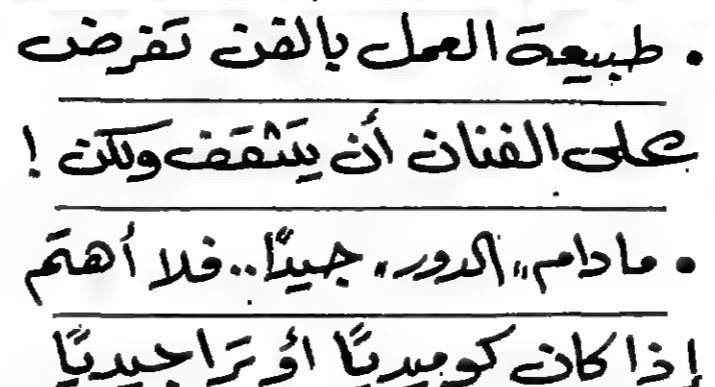 • طبيعة العمل بالفن تفرض
على الفنان أن يتثقف ولكن !
• مادام "الدور" جيدًا.. فلا أهتم
إذا كان كوميديًا أو تراجيديًا